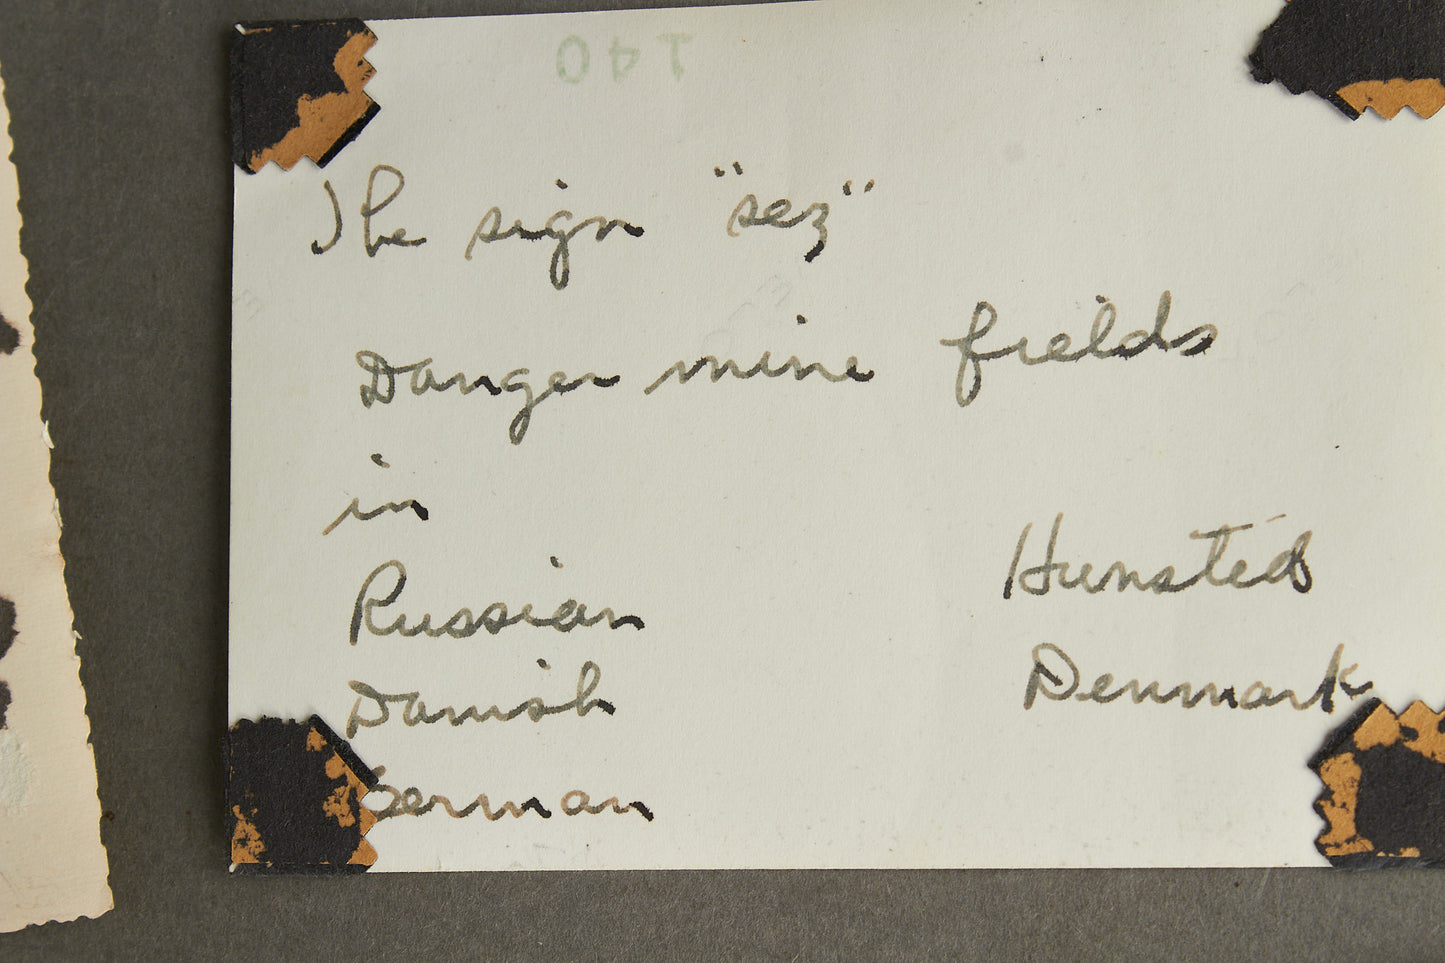 140
The sign "sez"
Danger mine fields
in
Russian
Danish
German
Hunsted
Denmark